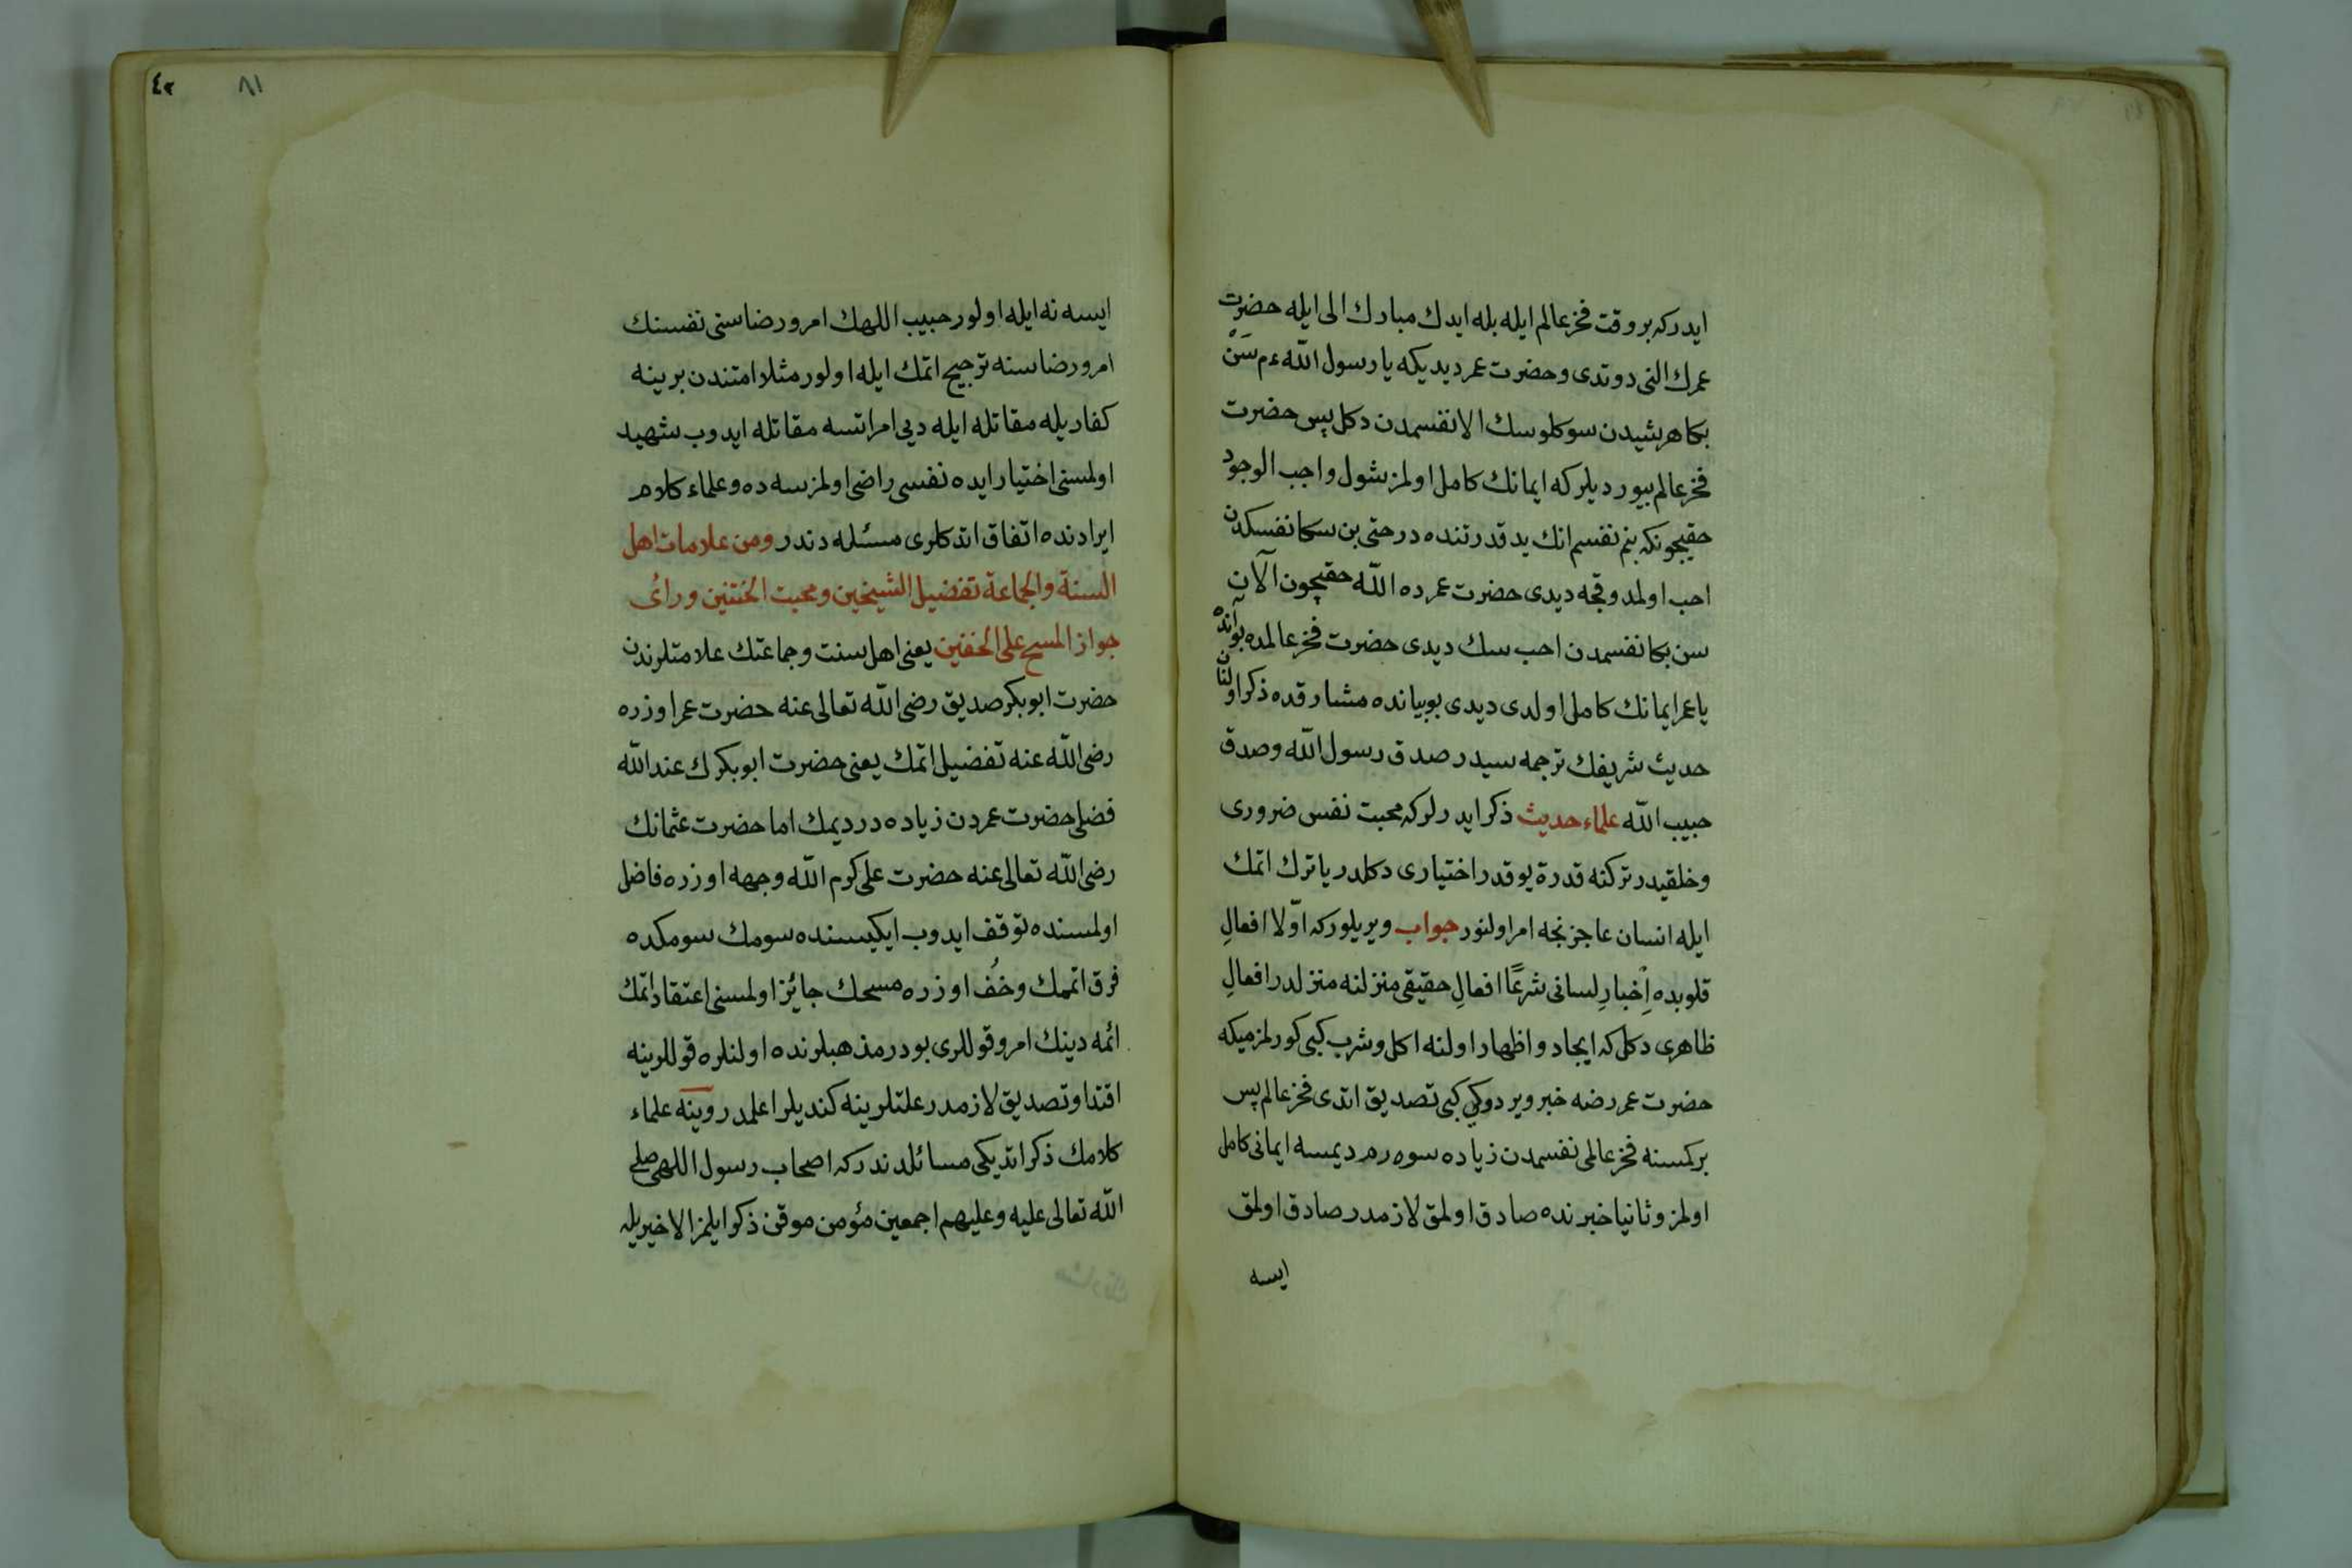 ايدركه بر وقت فخر عالم ايله بله ايدك مبارك الى ايله حضرت
عمرك النى دوتدى وحضرت عمر ديديكه يا رسول الله ءم سَنْ
بكا هر شيدن سوكلوسك الا نفسمدن دكل پس حضرت
فخر عالم بيورديلركه ايمانك كامل اولمز شول واجب الوجود
حقيچونكه بنم نفسم انك يد قدرتنده در حتى بن سكا نفسكدن
احب اولمدوقجه ديدى حضرت عمر ده الله حقيچون الآن
سن بكا نفسمدن احب سك ديدى حضرت فخر عالمده بو آنده
يا عمر ايمانك كامل اولدى ديدى بو بيانده مشارقده ذكر اولنان
حديث شريفك ترجمه سيدر صدق رسول الله وصدق
حبيب الله علماء حديث ذكر ايدرلركه محبت نفس ضرورى
وخلقيدر تركنه قدرة يوقدر اختيارى دكلدر يا ترك اتمك
ايله انسان عاجز نجه امر اولنور جواب ويريلوركه اوّلا افعالِ
قلوبده اِخبارِ لسانى شرعًا افعالِ حقيقى منزلنه منزلدر افعالِ
ظاهرى دكل كه ايجاد واظهار اولنه اكل وشرب كبى كورلمزميكه
حضرت عمر رضه خبر ويردوكى كبى تصديق اتدى فخر عالم پس
بركمسنه فخر عالمى نفسمدن زياده سوه رم ديمسه ايمانى كامل
اولمز وثانيا خبرنده صادق اولمق لازمدر صادق اولمق
ايسه
٨١
٤٢
ايسه نه ايله اولور حبيب اللهك امر ورضاسنى نفسنك
امر ورضاسنه ترجيح اتمك ايله اولور مثلا امتندن برينه
كفاريله مقاتله ايله ديى امر اتسه مقاتله ايدوب شهيد
اولمسنى اختيار ايده نفسى راضى اولمزسه ده وعلماء كلام
ايرادنده اتفاق اتدكلرى مسئله دندر ومن علامات اهل
السنة والجماعة تفضيل الشيخين ومحبت الختنين ورائ
جواز المسح على الخفين يعنى اهل سنت وجماعتك علامتلرندن
حضرت ابو بكر صديق رضى الله تعالى عنه حضرت عمر اوزره
رضى الله عنه تفضيل اتمك يعنى حضرت ابو بكرك عند الله
فضلى حضرت عمردن زياده در ديمك اما حضرت عثمانك
رضى الله تعالى عنه حضرت على كرم الله وجهه اوزره فاضل
اولمسنده توقف ايدوب ايكيسنده سومك سومكده
فرق اتممك وخُف اوزره مسحك جائز اولمسنى اعتقاد اتمك
ائمه دينك امر وقوللرى بودر مذهبلرنده اولنلره قوللرينه
اقتدا وتصديق لازمدر علتلرينه كنديلر اعلمدر وينه علماء
كلامك ذكر اتديكى مسائلدندركه اصحاب رسول اللهى صلى
الله تعالى عليه وعليهم اجمعين مؤمن موقن ذكر ايلمز الا خيريله